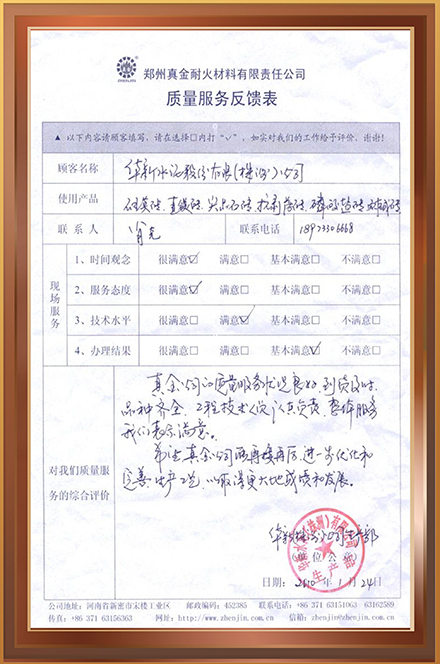 郑州真金耐火材料有限责任公司
质量服务反馈表
▲ 以下内容请顾客填写,请在选择□内打"✓",如实对我们的工作给予评价,谢谢!
顾客名称 华新水泥股份有限(株洲)公司
使用产品
联系人 联系电话
现场服务
1、时间观念 很满意☑ 满意□ 基本满意□ 不满意□
2、服务态度 很满意☑ 满意□ 基本满意□ 不满意□
3、技术水平 很满意□ 满意☑ 基本满意□ 不满意□
4、办理结果 很满意□ 满意□ 基本满意☑ 不满意□
对我们质量服务的综合评价
真金公司的质量服务状况良好,到货及时,
品种齐全,工程技术人员认真负责,整体服务
我们表示满意。
希望真金公司再接再厉,进一步优化和
完善生产工艺,以取得更大地成绩和发展。
(单位公章)
日期:2010年1月24日
公司地址:河南省新密市宋楼工业区 邮政编码:452385 联系电话:+86 371 63151063 63162589
传真:+86 371 63156363 网址:http://www.zhenjin.com.cn 信箱:zhenjin@zhenjin.com.cn